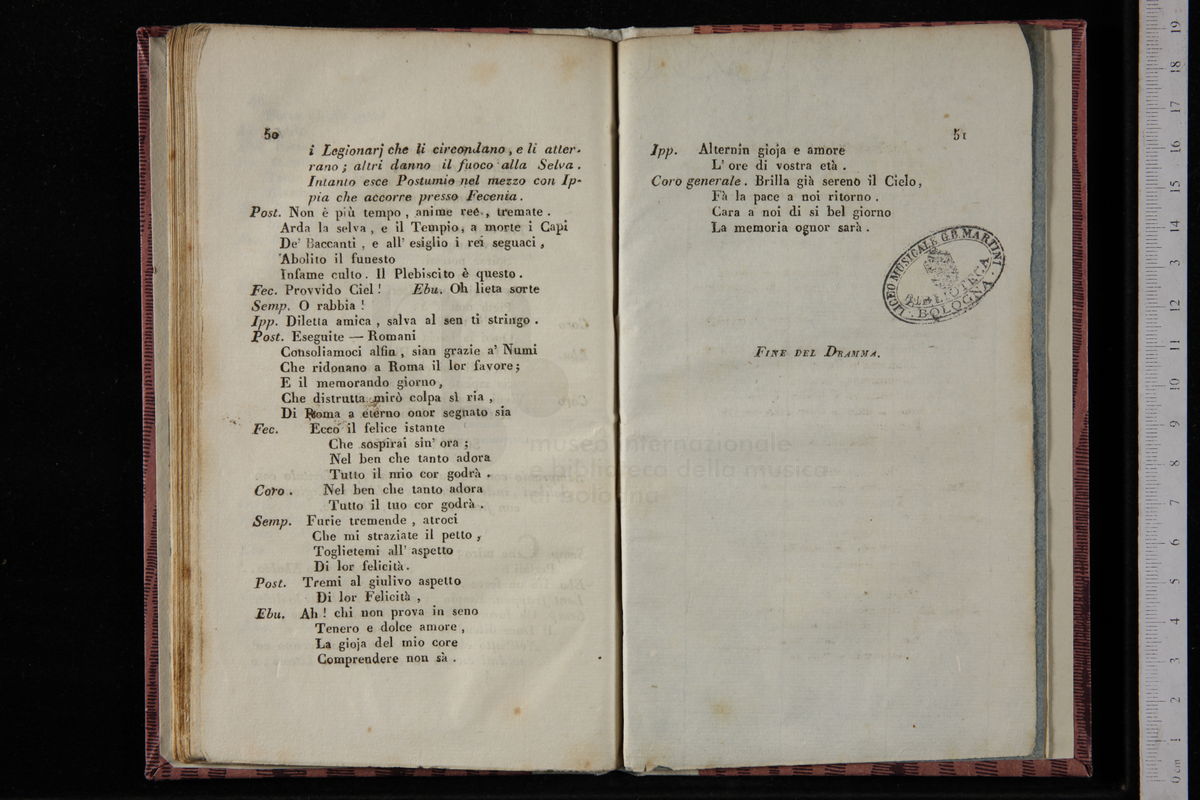 50
i Legionarj che li circondano, e li atter-
rano; altri danno il fuoco alla Selva.
Intanto esce Postumio nel mezzo con Ip-
pia che accorre presso Fecenia.
Post. Non è più tempo, anime reé, tremate.
Arda la selva, e il Tempio, a morte i Capi
De' Baccanti, e all' esiglio i rei seguaci,
Abolito il funesto
Infame culto. Il Plebiscito è questo.
Fec. Provvido Ciel! Ebu. Oh lieta sorte
Semp. O rabbia!
Ipp. Diletta amica, salva al sen ti stringo.
Post. Eseguite — Romani
Consoliamoci alfin, sian grazie a' Numi
Che ridonano a Roma il lor favore;
E il memorando giorno,
Che distrutta mirò colpa sì ria,
Di Roma a eterno onor segnato sia
Fec. Ecco il felice istante
Che sospirai sin' ora;
Nel ben che tanto adora
Tutto il mio cor godrà.
Coro. Nel ben che tanto adora
Tutto il tuo cor godrà.
Semp. Furie tremende, atroci
Che mi straziate il petto,
Toglietemi all' aspetto
Di lor felicità.
Post. Tremi al giulivo aspetto
Di lor Felicità,
Ebu. Ah! chi non prova in seno
Tenero e dolce amore,
La gioja del mio core
Comprendere non sà.
51
Ipp. Alternin gioja e amore
L' ore di vostra età.
Coro generale. Brilla già sereno il Cielo,
Fà la pace a noi ritorno.
Cara a noi di si bel giorno
La memoria ognor sarà.
LICEO MUSICALE G.B. MARTINI
BIBLIOTECA
BOLOGNA
FINE DEL DRAMMA.
museo internazionale
e biblioteca della musica
di bologna
0 cm 1 2 3 4 5 6 7 8 9 10 11 12 13 14 15 16 17 18 19